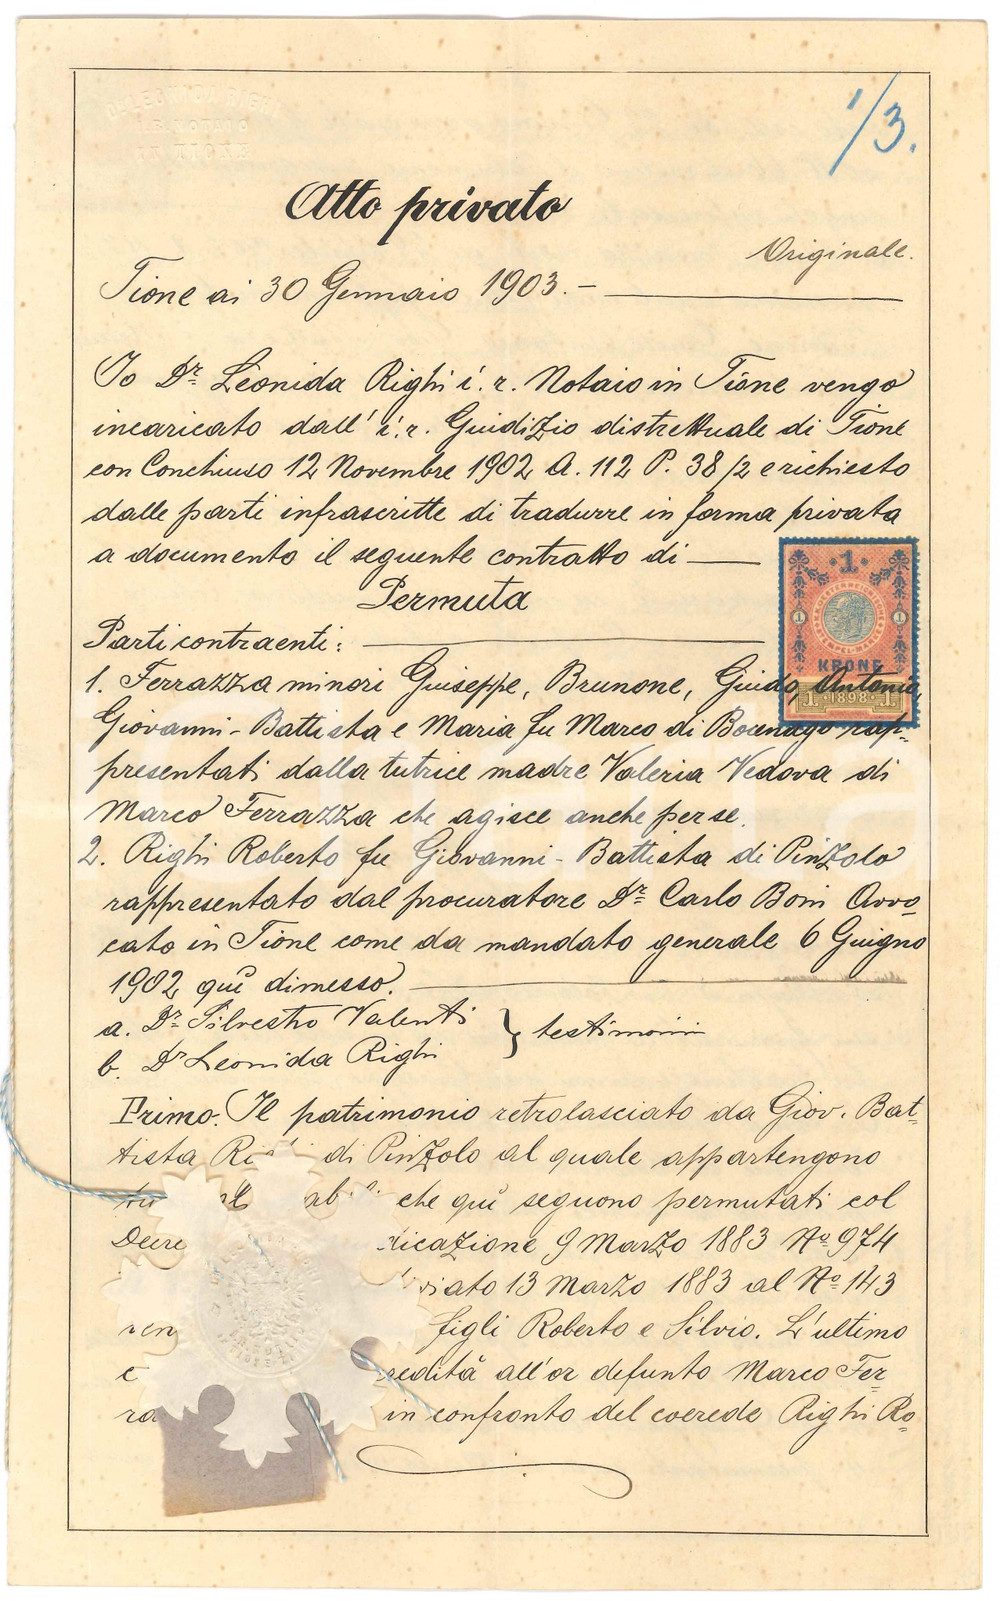 Dr. LEONIDA RIGHI
I. R. NOTAIO
IN TIONE
1/3.
Atto privato
Originale.
Tione ai 30 Gennaio 1903.-
Io Dr. Leonida Righi i. r. Notaio in Tione vengo
incaricato dall' i. r. Guidizio distrettuale di Tione
con Conchiuso 12 Novembre 1902 A. 112 P. 38/2 e richiesto
dalle parti infrascritte di tradurre in forma privata
a documento il seguente contratto di
Permuta
Parti contraenti:
1. Ferrazza minori Guiseppe, Brunone, Guido, Antonia,
Giovanni-Battista e Maria fu Marco di Bocenago rap-
presentati dalla tutrice madre Valeria Vedova di
Marco Ferrazza che agisce anche per se.
2. Righi Roberto fu Giovanni-Battista di Pinzolo
rappresentato dal procuratore Dr. Carlo Boni Avvo-
cato in Tione come da mandato generale 6 Guigno
1902 quì dimesso.
a. Dr. Silvestro Valenti } testimoni
b. Dr Leonida Righi
Primo. Il patrimonio retrolasciato da Giov. Bat-
tista Ri di Pinzolo al quale appartengono
che quì seguono permutati col
Decre dicazione 9 Marzo 1883 No 974
13 Marzo 1883 al No 143
ven figli Roberto e Silvio. L'ultimo
e redità all'or defunto Marco Fer-
ra in confronto del coerede Righi Ro-
1
1 1
KRONE
1 1898 1